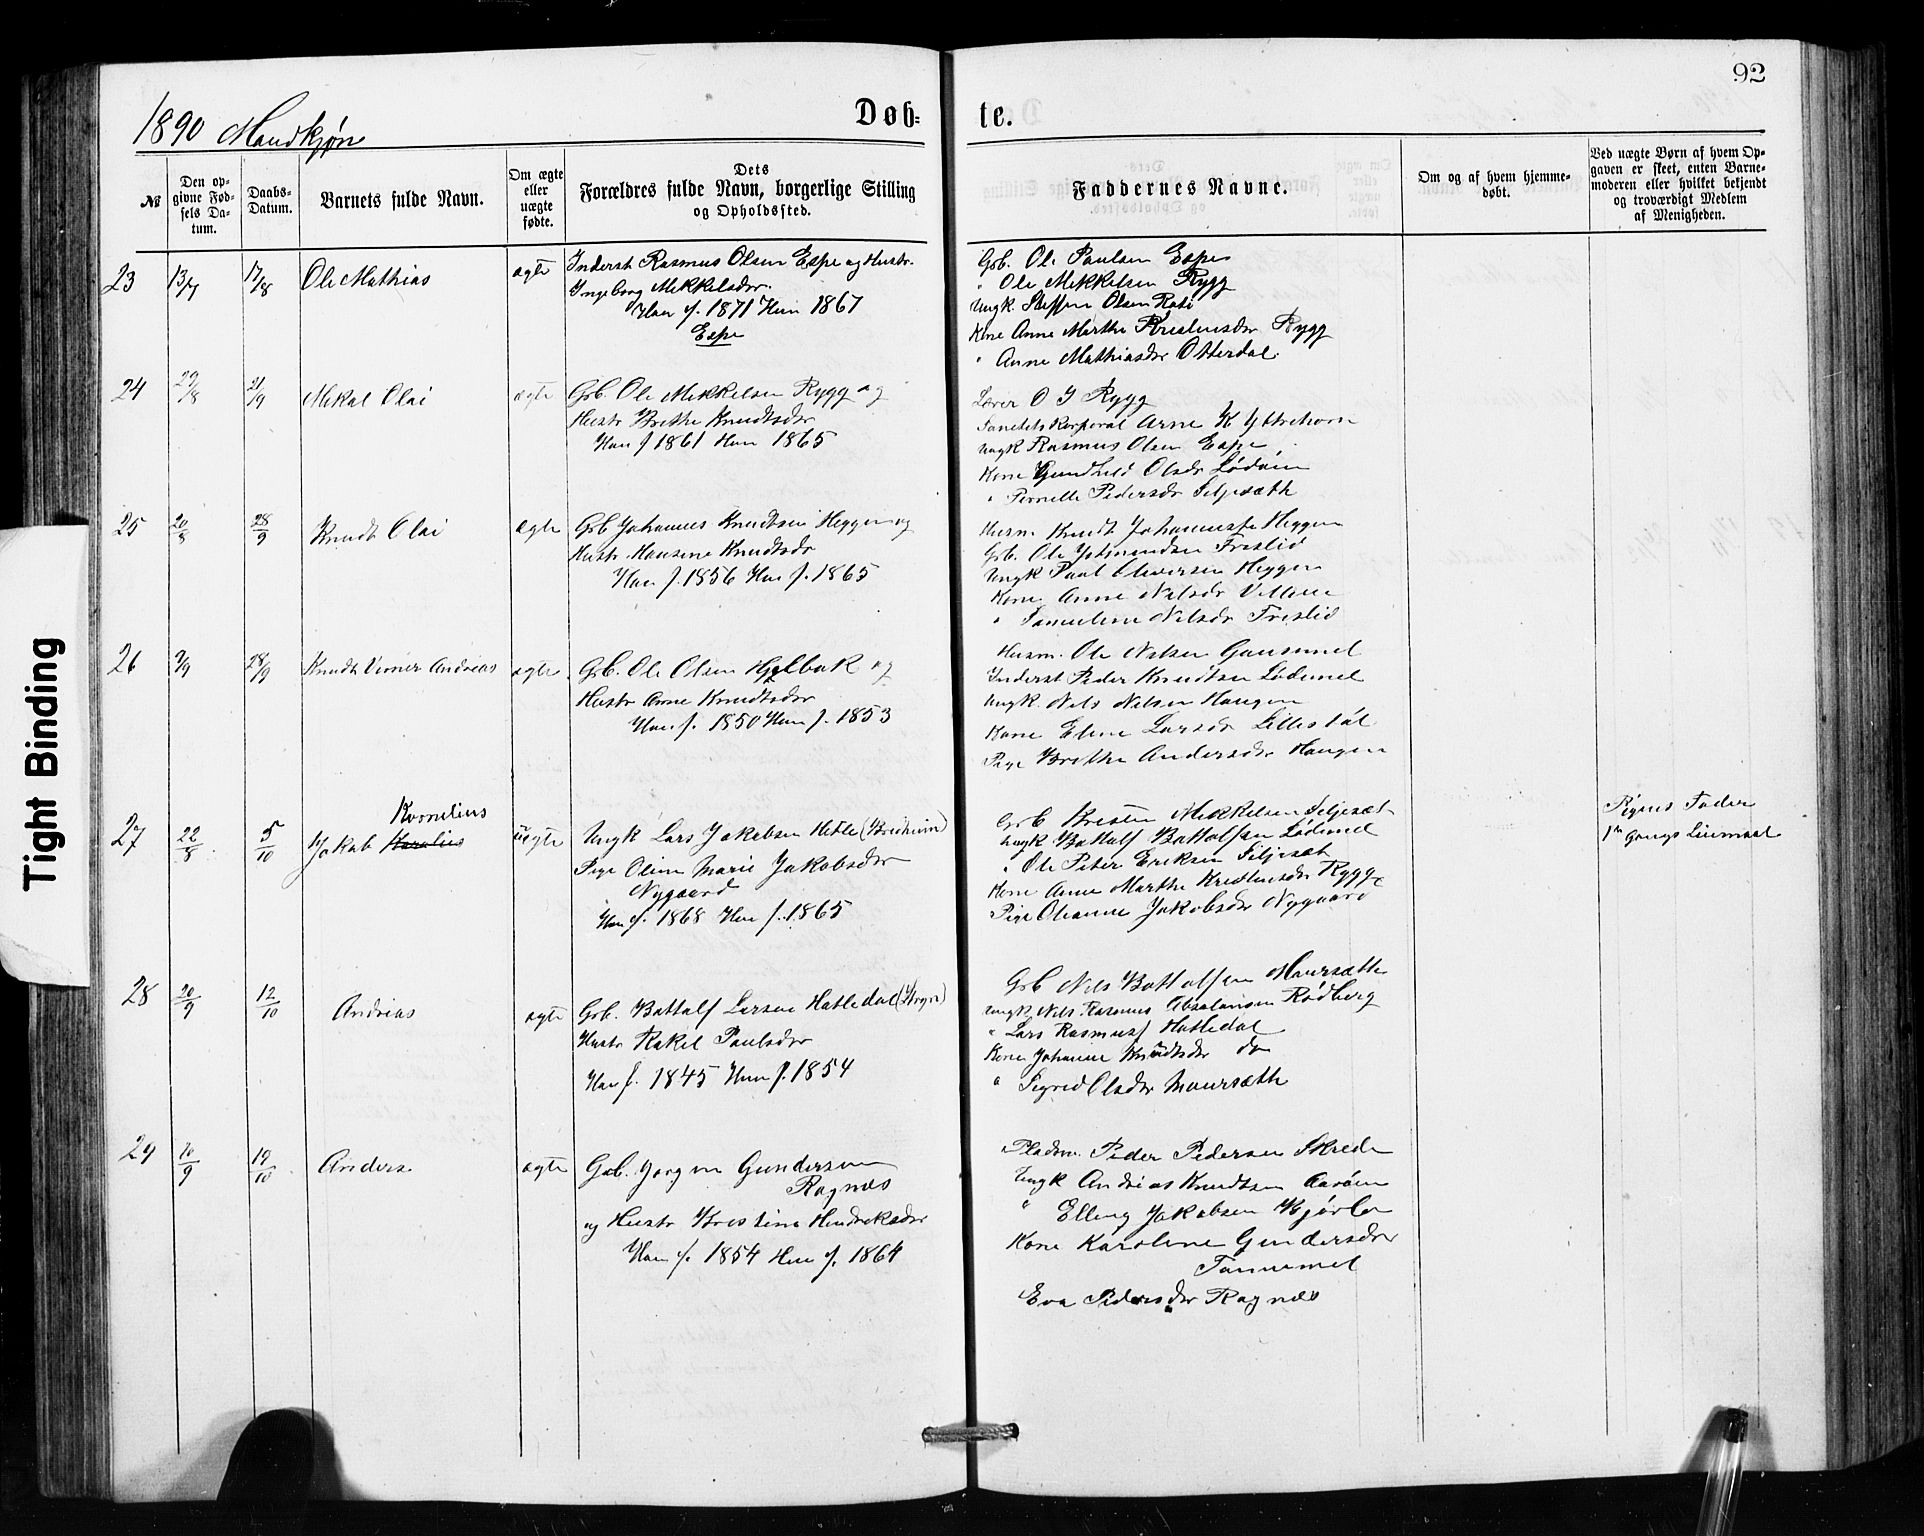 92
1890 Mandkjøn
Døb-
te.
№
Den op-
givne Fød-
sels Da-
tum.
Daabs-
Datum.
Barnets fulde Navn.
Om ægte
eller
uægte
fødte.
Dets
Forældres fulde Navn, borgerlige Stilling
og Opholdssted.
Faddernes Navne.
Om og af hvem hjemme-
døbt.
Ved uægte Børn af hvem Op-
gaven er skeet, enten Barne-
moderen eller hvilket bekjendt
og troværdigt Medlem
af Menigheden.
23 13/7 17/8 Ole Mathias ægte
Inderst Rasmus Olsen Espe og Hustr.
Ingeborg Mikkelsdr.
Han f. 1871 Hun 1867
Espe
Grb. Ole Paulsen Espe
" Ole Mikkelsen Rygg
Ungk. Steffen Olsen
Kone Anne Marthe Kristensdr Rygg
" Anne Mathiasdr Otterdal
24 29/8 21/9 Mikal Olai ægte
Grb. Ole Mikkelsen Rygg og
Hustr Brithe Knudtsdr
Han f 1861 Hun 1865
Lærer O J Rygg
Sanitetskorporal Arne K Ytrehorn
Ungk Rasmus Olsen Espe
Kone Gundhild Olsdr Lødøen
" Pernille Pedersdr Seljesæth
25 20/8 28/9 Knudt Olai ægte
Grb Johannes Knudtsen Heggen og
Hustr Hansine Knudtsdr
Han f. 1856 Hun f. 1865
Husm. Knudt Johannessen Heggen
Grb. Ole Fristid
Ungk Paul Heggen
Kone Anne Nilsdr
" Nilsdr Fristid
26 9/9 28/9 Knudt Verner Andreas ægte
Grb. Ole Olsen Hjelbak og
Hustr Anne Knudtsdr
Han f. 1850 Hun f. 1853
Husm. Ole Nilsen Gausemel
Inderst Peder Knudtsen Lødemel
Ungk. Nils Nilsen Haugen
Kone Eline Larsdr Lillestøl
Pige Brithe Andersdr Haugen
27 22/8 5/10 Jakab Karolius
Kornelius
uægte
Ungk Lars Jakobsen Hetle (Breiheim)
Pige Oline Marie Jakobsdr
Nygaard
Han f. 1868 Hun f. 1865
Grb Kristen Mikkelsen Seljesæt
Ungk Bottolf Bottolfsen Lødemel
" Ole Peter Eriksen Seljesæt
Kone Anne Marthe Kristensdr Rygg
Pige Olianne Jakobsdr Nygaard
Pigens Fader
1ste Gangs Leiermaal
28 20/9 12/10 Andreas ægte
Grb. Bottolf Larsen Hatledal (Stryn)
Hustr Rakel Paulsdr
Han f. 1845 Hun f. 1854
Grb Nils Bottolfsen Maursæth
Ungk Nils Rasmus Absalonsen Rødberg
" Lars Rasmuss Hatledal
Kone Johanne Knudtsdr do
" Sigrid Olsdr Maursæth
29 10/9 19/10 Anders ægte
Grb. Jørgen Gundersen
Ragnæs
og Hustr Kristine Hendriksdr
Han f. 1854 Hun f. 1864
Pladsm. Peder Pedersen Skrede
Ungk Andreas Knudtsen Aarøen
" Elling Jakobsen
Kone Karoline Gundersdr
Eva Pedersdr Ragnæs
Tight Binding